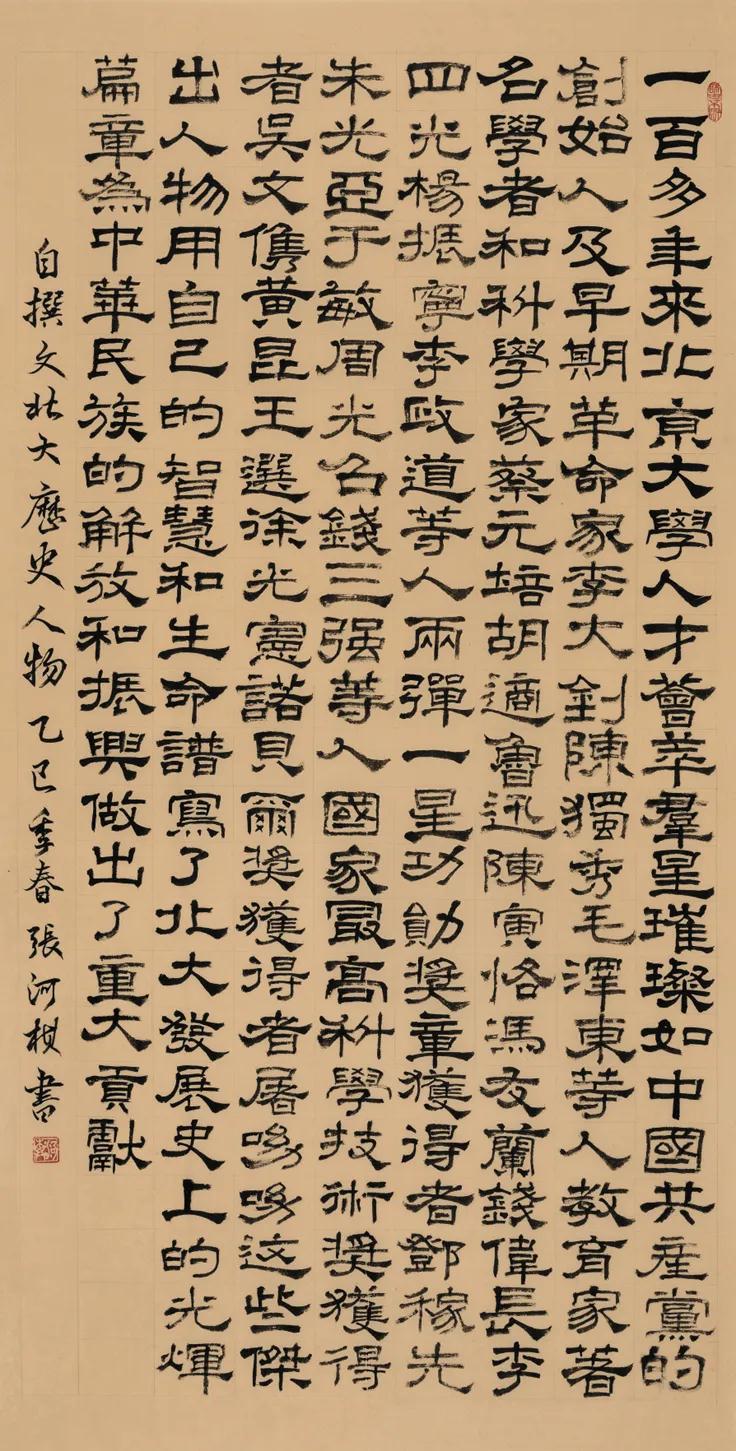 一百多年來北京大學人才薈萃羣星璀璨如中國共產黨的
創始人及早期革命家李大釗陳獨秀毛澤東等人教育家著
名學者和科學家蔡元培胡適魯迅陳寅恪馮友蘭錢偉長李
四光楊振寧李政道等人兩彈一星功勛獎章獲得者鄧稼先
朱光亞于敏周光召錢三强等人國家最高科學技術獎獲得
者吳文儁黃昆王選徐光憲諾貝爾獎獲得者屠呦呦这些傑
出人物用自己的智慧和生命譜寫了北大發展史上的光煇
篇章為中華民族的解放和振興做出了重大貢獻
自撰文北大歷史人物乙巳季春張河書